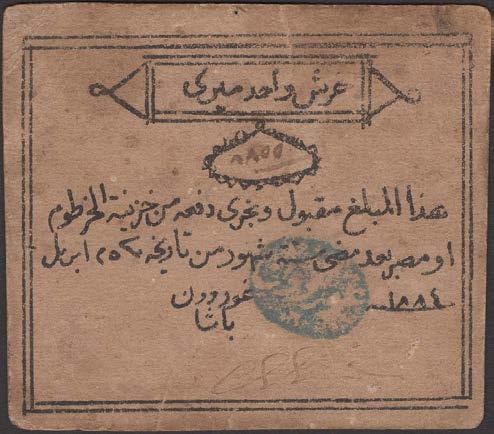 غرش واحد ميرى
هذا المبلغ مقبول ويجرى دفعه من خزينة الخرطوم
او مصر بعد مضى ستة شهور من تاريخه ٢٥ ابريل
١٨٨٤
غوردون
باشا